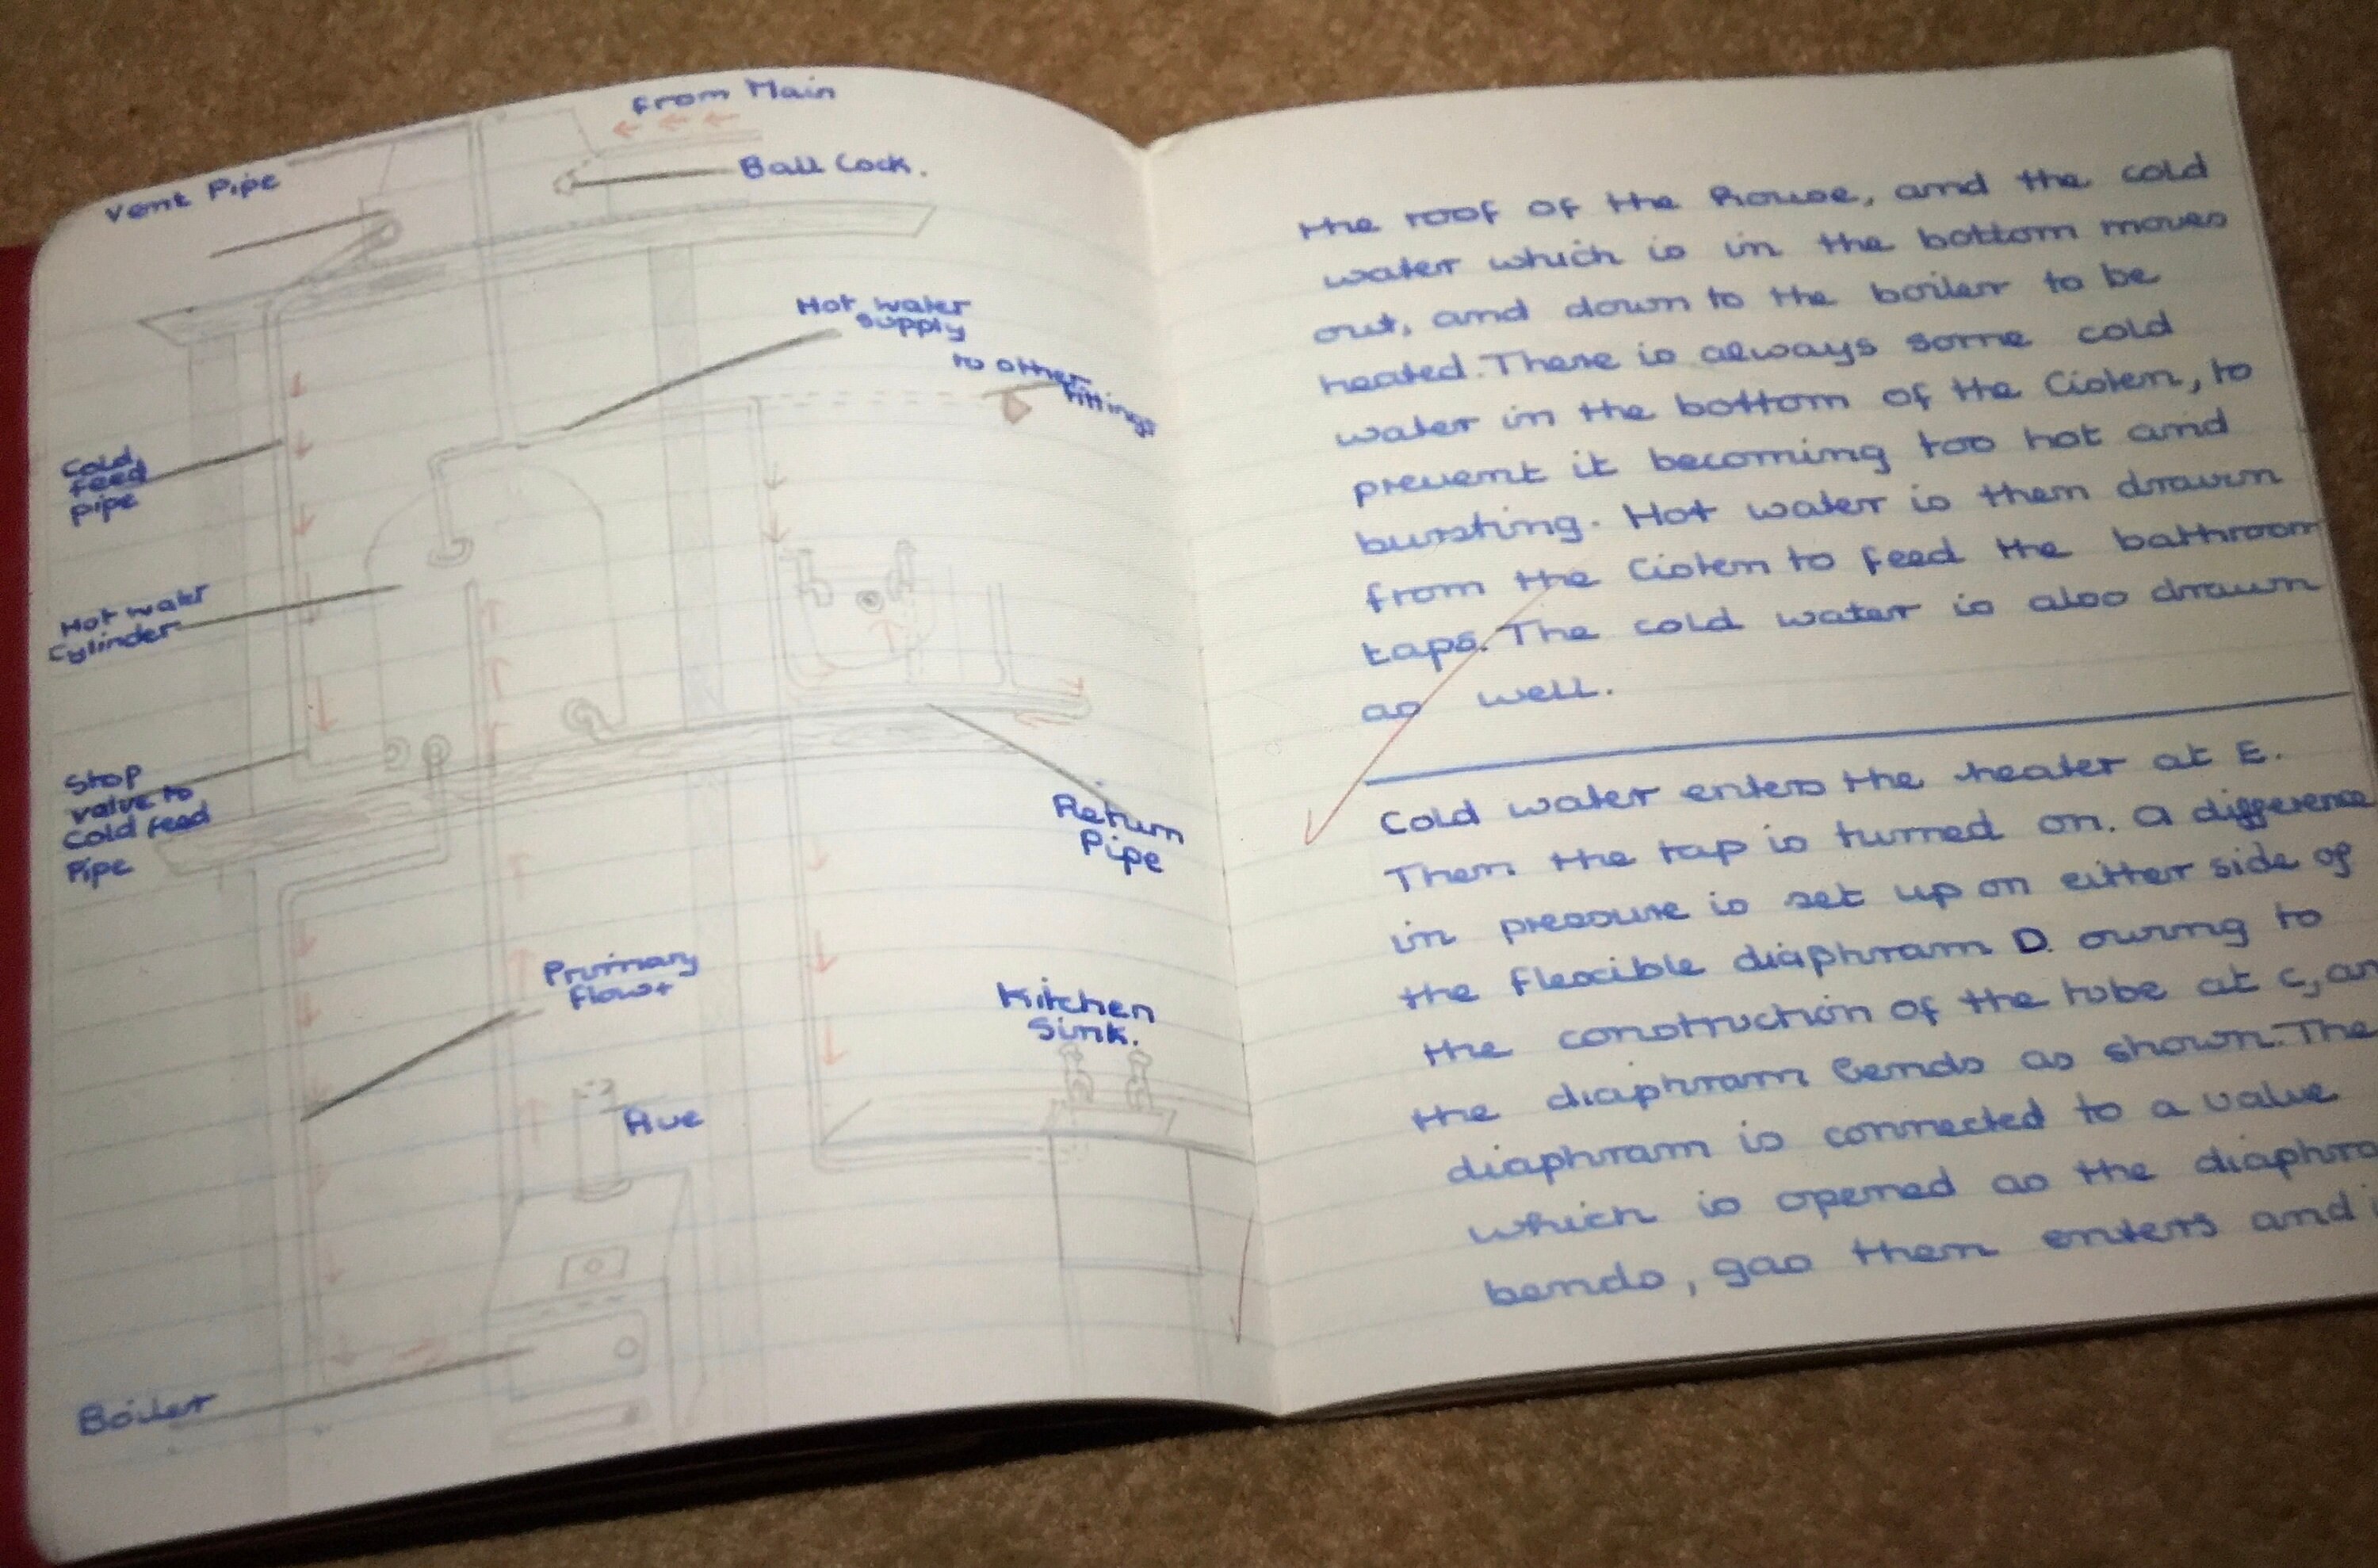 from Main
Vent Pipe
Ball Cock.
Hot water
supply
to other
fittings
Cold
feed
pipe
Hot water
Cylinder
Stop
valve to
Cold feed
Pipe
Return
Pipe
Primary
flow
Kitchen
Sink.
flue
Boiler
the roof of the house, and the cold
water which is in the bottom moves
out, and down to the boiler to be
heated. There is always some cold
water in the bottom of the Cistern, to
prevent it becoming too hot and
bursting. Hot water is then drawn
from the Cistern to feed the bathroom
taps. The cold water is also drawn
as well.
Cold water enters the heater at E.
Then the tap is turned on. A difference
in pressure is set up on either side of
the flexible diaphram D. owing to
the construction of the tube at C, an
the diaphram bends as shown. The
diaphram is connected to a value
which is opened as the diaphra
bends, gas then enters and i